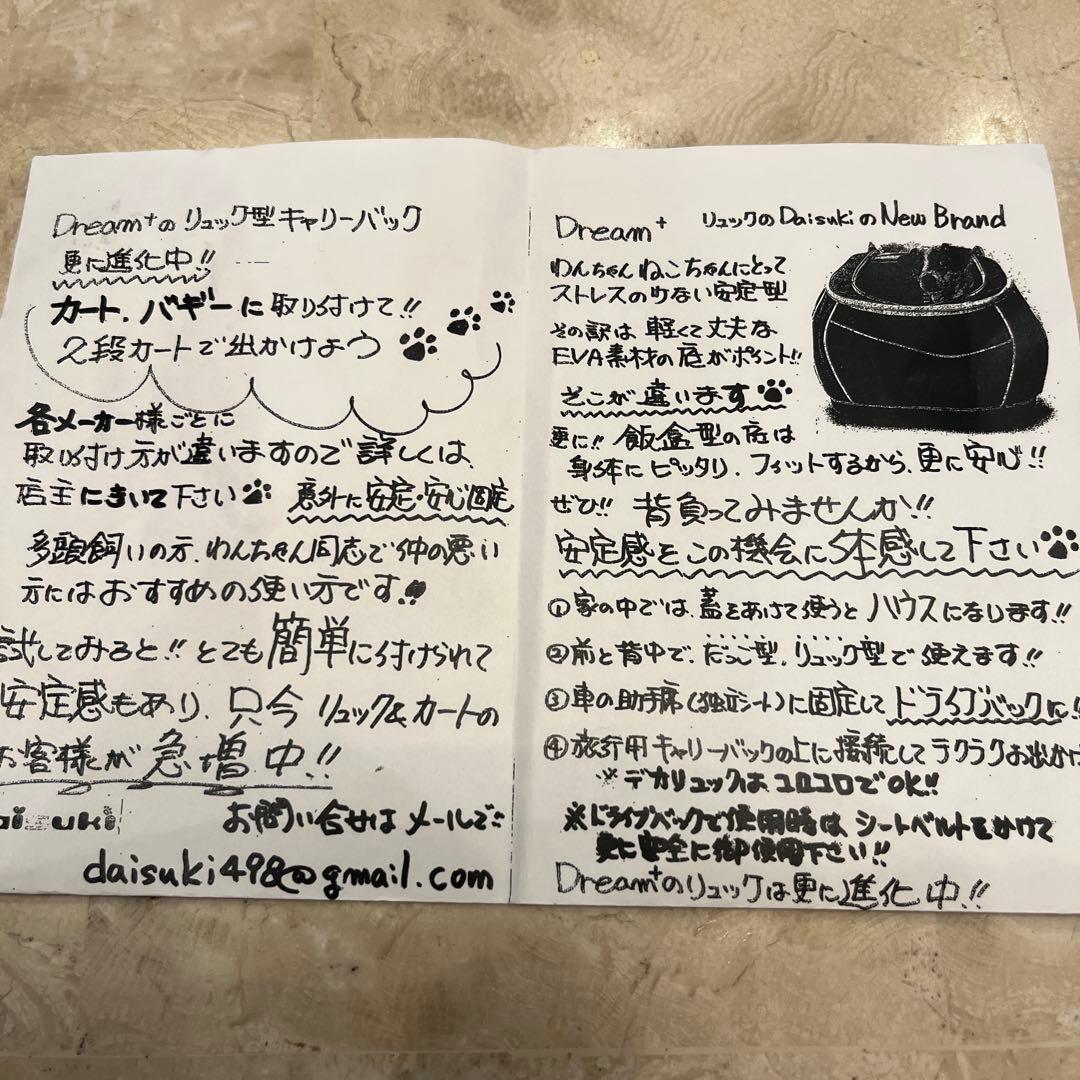 Dream+のリュック型キャリーバック
更に進化中!!
カート、バギーに取り付けて!!
2段カートで出かけよう
各メーカー様ごとに
取り付け方が違いますので詳しくは、
店主にきいて下さい 意外に安定・安心固定
多頭飼いの方、わんちゃん同志で仲の悪い
方にはおすすめの使い方です!!
試してみると!! とても簡単に付けられて
安定感もあり、只今リュック&カートの
お客様が急増中!!
aisuki お問い合せはメールで!!
daisuki498@gmail.com
Dream+ リュックのDaisukiのNew Brand
わんちゃんねこちゃんにとって
ストレスの少ない安定型
その訳は、軽くて丈夫な
EVA素材の底がポイント!!
そこが違います
更に!! 飯盒型の底は
身体にピッタリ、フィットするから、更に安心!!
ぜひ!! 背負ってみませんか!!
安定感をこの機会に体感して下さい
①家の中では、蓋をあけて使うとハウスになります!!
②前と背中で、だっこ型、リュック型で使えます!!
③車の助手席(独立シート)に固定してドライブバックに!!
④旅行用キャリーバックの上に接続してラクラクお出かけ
※デカリュックはコロコロでOK!!
※ドライブバックで使用時は、シートベルトをかけて
更に安全に御使用下さい!!
Dream+のリュックは更に進化中!!